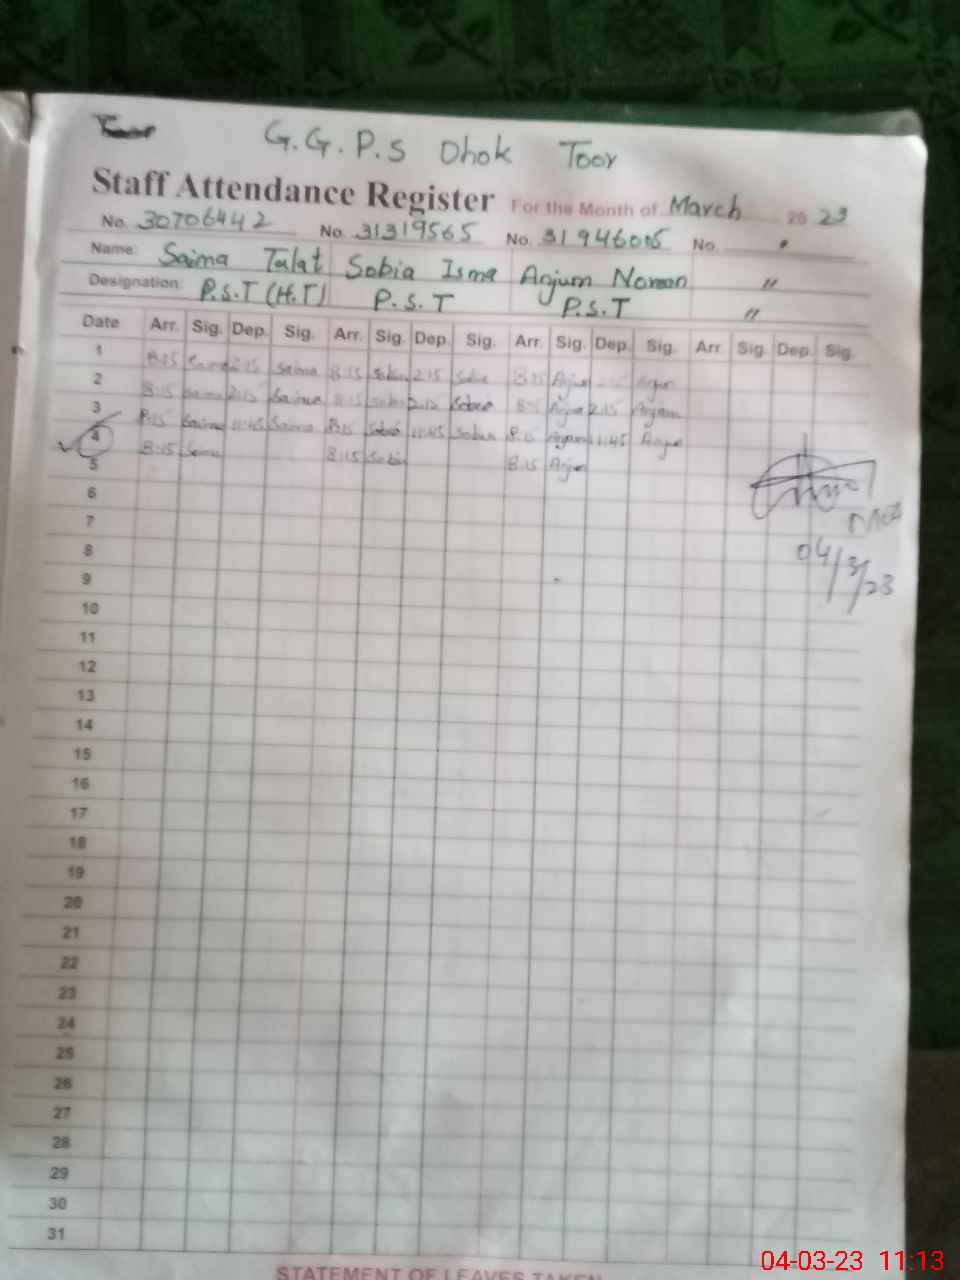 G.G.P.S Dhok Toor
Staff Attendance Register For the Month of March 20 23
No. 30706442 No. 31319565 No. 31946005 No.
Name: Saima Talat Sobia Isma Anjum Noman "
Designation: P.S.T (H.T) P.S.T P.S.T "
Date Arr. Sig. Dep. Sig. Arr. Sig. Dep. Sig. Arr. Sig. Dep. Sig. Arr. Sig. Dep. Sig.
1 8:15 Saima 2:15 Saima 8:15 Sobia 2:15 Sobia 8:15 Anjum 2:15 Anjum
2 8:15 Saima 2:15 Saima 8:15 Sobia 2:15 Sobia 8:15 Anjum 2:15 Anjum
3 8:15 Saima 11:45 Saima 8:15 Sobia 11:45 Sobia 8:15 Anjum 11:45 Anjum
4 8:15 Saima 8:15 Sobia 8:15 Anjum
5
6
7
MEA
8
04/3/23
9
10
11
12
13
14
15
16
17
18
19
20
21
22
23
24
25
26
27
28
29
30
31
04-03-23 11:13
STATEMENT OF LEAVES TAKEN